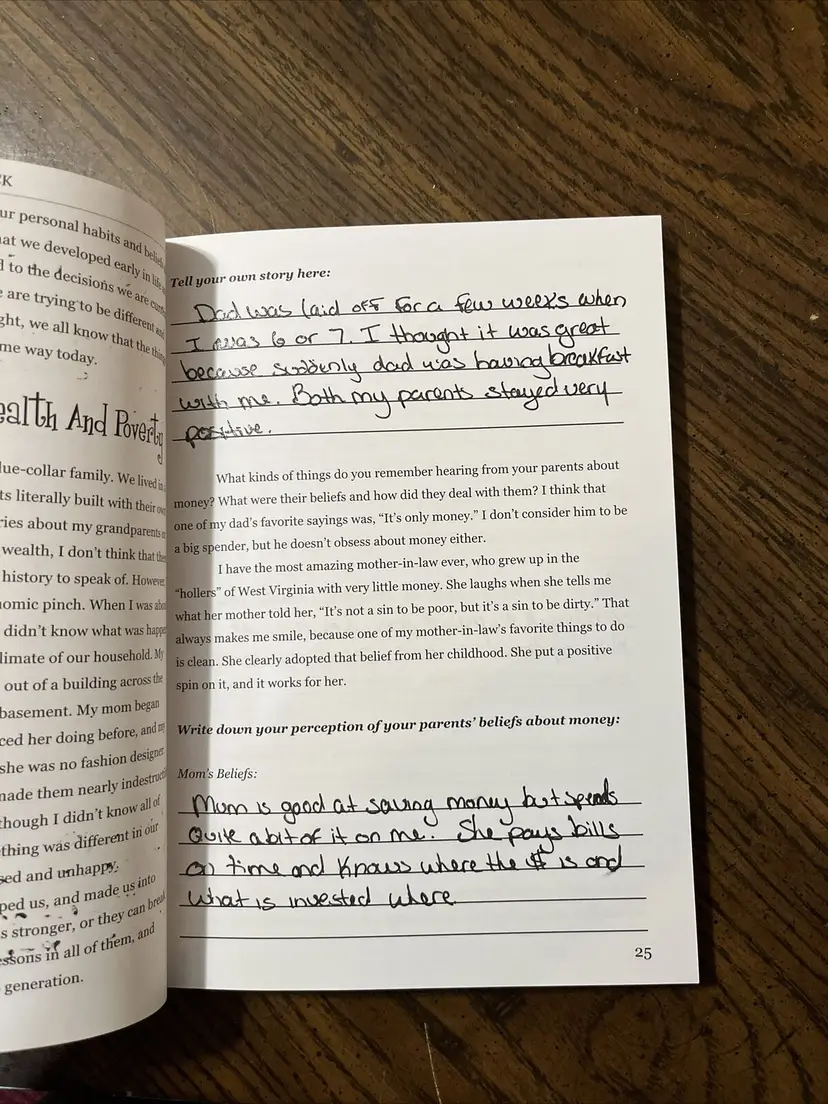 CK
ur personal habits and
at we developed early in life
d to the decisions we are
e are trying to be different and
ght, we all know that the
me way today.
ealth And Poverty
lue-collar family. We lived in
ts literally built with their own
ries about my grandparents
wealth, I don't think that
history to speak of. However
nomic pinch. When I was
didn't know what was
limate of our household. My
out of a building across the
basement. My mom began
ced her doing before, and my
she was no fashion designer
made them nearly
though I didn't know all of
thing was different in our
sed and unhappy.
ped us, and made us into
s stronger, or they can break
essons in all of them, and
generation.
Tell your own story here:
Dad was laid off for a few weeks when
I was 6 or 7. I thought it was great
because suddenly dad was having breakfast
with me. Both my parents stayed very
positive.
What kinds of things do you remember hearing from your parents about
money? What were their beliefs and how did they deal with them? I think that
one of my dad's favorite sayings was, “It's only money.” I don't consider him to be
a big spender, but he doesn't obsess about money either.
I have the most amazing mother-in-law ever, who grew up in the
“hollers” of West Virginia with very little money. She laughs when she tells me
what her mother told her, “It's not a sin to be poor, but it's a sin to be dirty.” That
always makes me smile, because one of my mother-in-law's favorite things to do
is clean. She clearly adopted that belief from her childhood. She put a positive
spin on it, and it works for her.
Write down your perception of your parents' beliefs about money:
Mom's Beliefs:
Mom is good at saving money but spends
Quite a bit of it on me. She pays bills
on time and knows where the $ is and
what is invested where
25